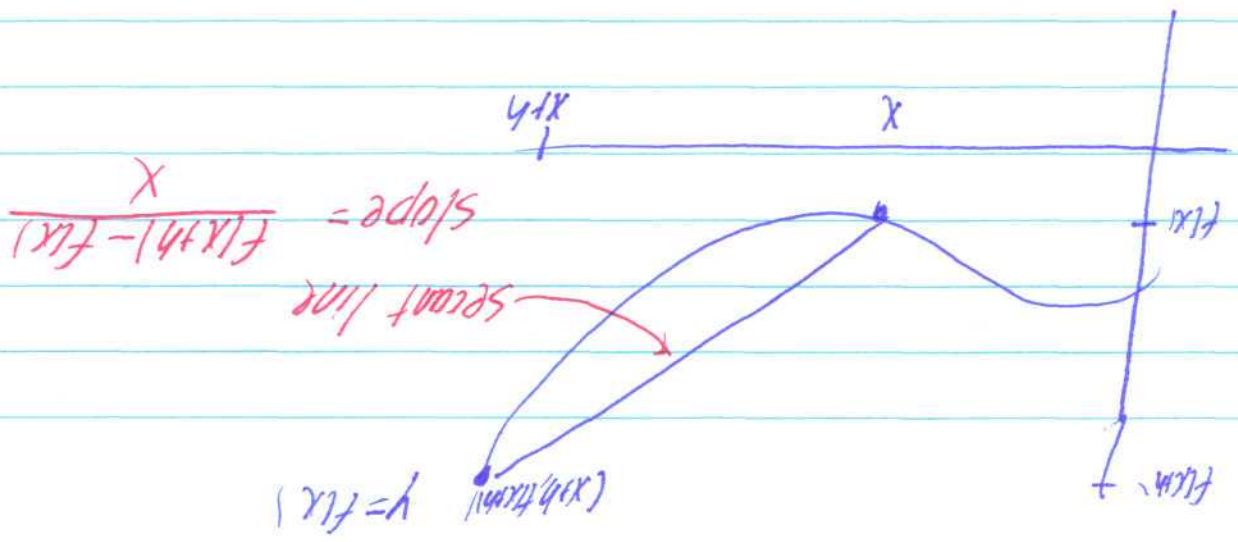 f(x+h)
(x+h, f(x+h))
y = f(x)
secant line
slope = f(x+h) - f(x)
x
f(x)
x
x+h